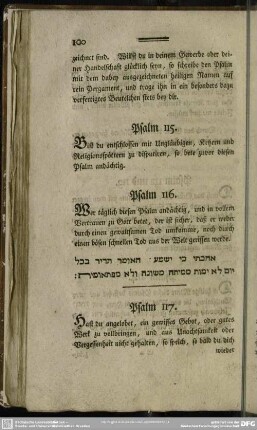 100
zeichnet sind. Willst du in deinem Gewerbe oder dei-
ner Handelschaft glücklich seyn, so schreibe den Psalm
mit dem dabey ausgezeichneten heiligen Namen auf
rein Pergament, und trage ihn in ein besonders dazu
verfertigtes Beutelchen stets bey dir.
Psalm 115.
Bist du entschlossen mit Ungläubigen, Ketzern und
Religionsspöttern zu disputiren, so bete zuvor diesen
Psalm andächtig.
Psalm 116.
Wer täglich diesen Psalm andächtig, und in vollem
Vertrauen zu Gott betet, der ist sicher, daß er weder
durch einen gewaltsamen Tod umkomme, noch durch
einen bösen schnellen Tod aus der Welt gerissen werde.
אהבתי כי ישמע האומר תדיר בכל
יום לא ימות מיתה משונה ולא
Psalm 117.
Hast du angelobet, ein gewisses Gebot, oder gutes
Werk zu vollbringen, und aus Unachtsamkeit oder
Vergessenheit nicht gehalten, so sprich, so bald du dich
wieder